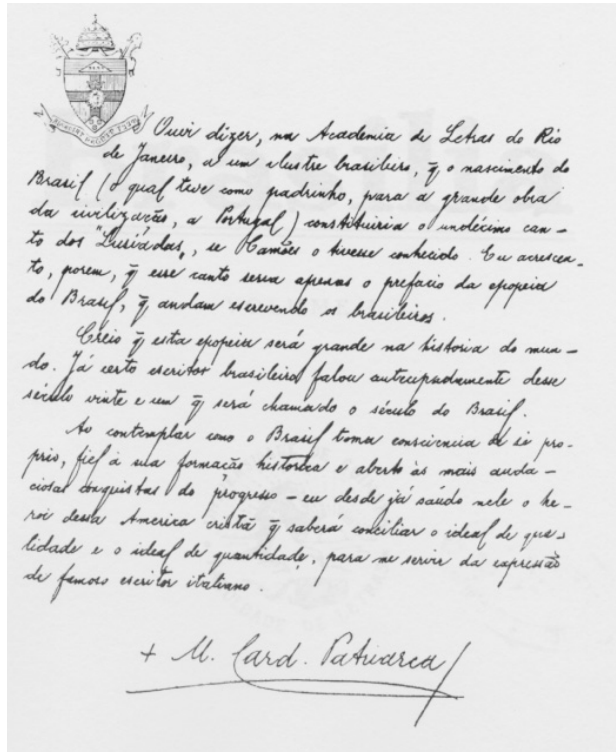 Ouvi dizer, na Academia de Letras do Rio
de Janeiro, a um ilustre brasileiro, q̃ o nascimento do
Brasil (o qual teve como padrinho, para a grande obra
da civilização, a Portugal) constituiria o undécimo can-
to dos "Lusíadas", se Camões o tivesse conhecido. Eu acrescen-
to, porem, q̃ esse canto seria apenas o prefacio da epopeia
do Brasil, q̃ andam escrevendo os brasileiros.
Creio q̃ esta epopeia será grande na historia do mun-
do. Já certo escritor brasileiro falou antecipadamente desse
século vinte e um q̃ será chamado o século do Brasil.
Ao contemplar como o Brasil toma consciencia de si pro-
prio, fiel à sua formação historica e aberto às mais auda-
ciosas conquistas do progresso - eu desde já saúdo nele o he-
roi dessa America cristã q̃ saberá conciliar o ideal de qua-
lidade e o ideal de quantidade, para me servir da expressão
de famoso escritor italiano.
+ M. Card. Patriarca